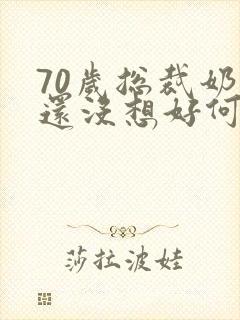 70歲總裁奶
還沒想好何
莎拉波娃